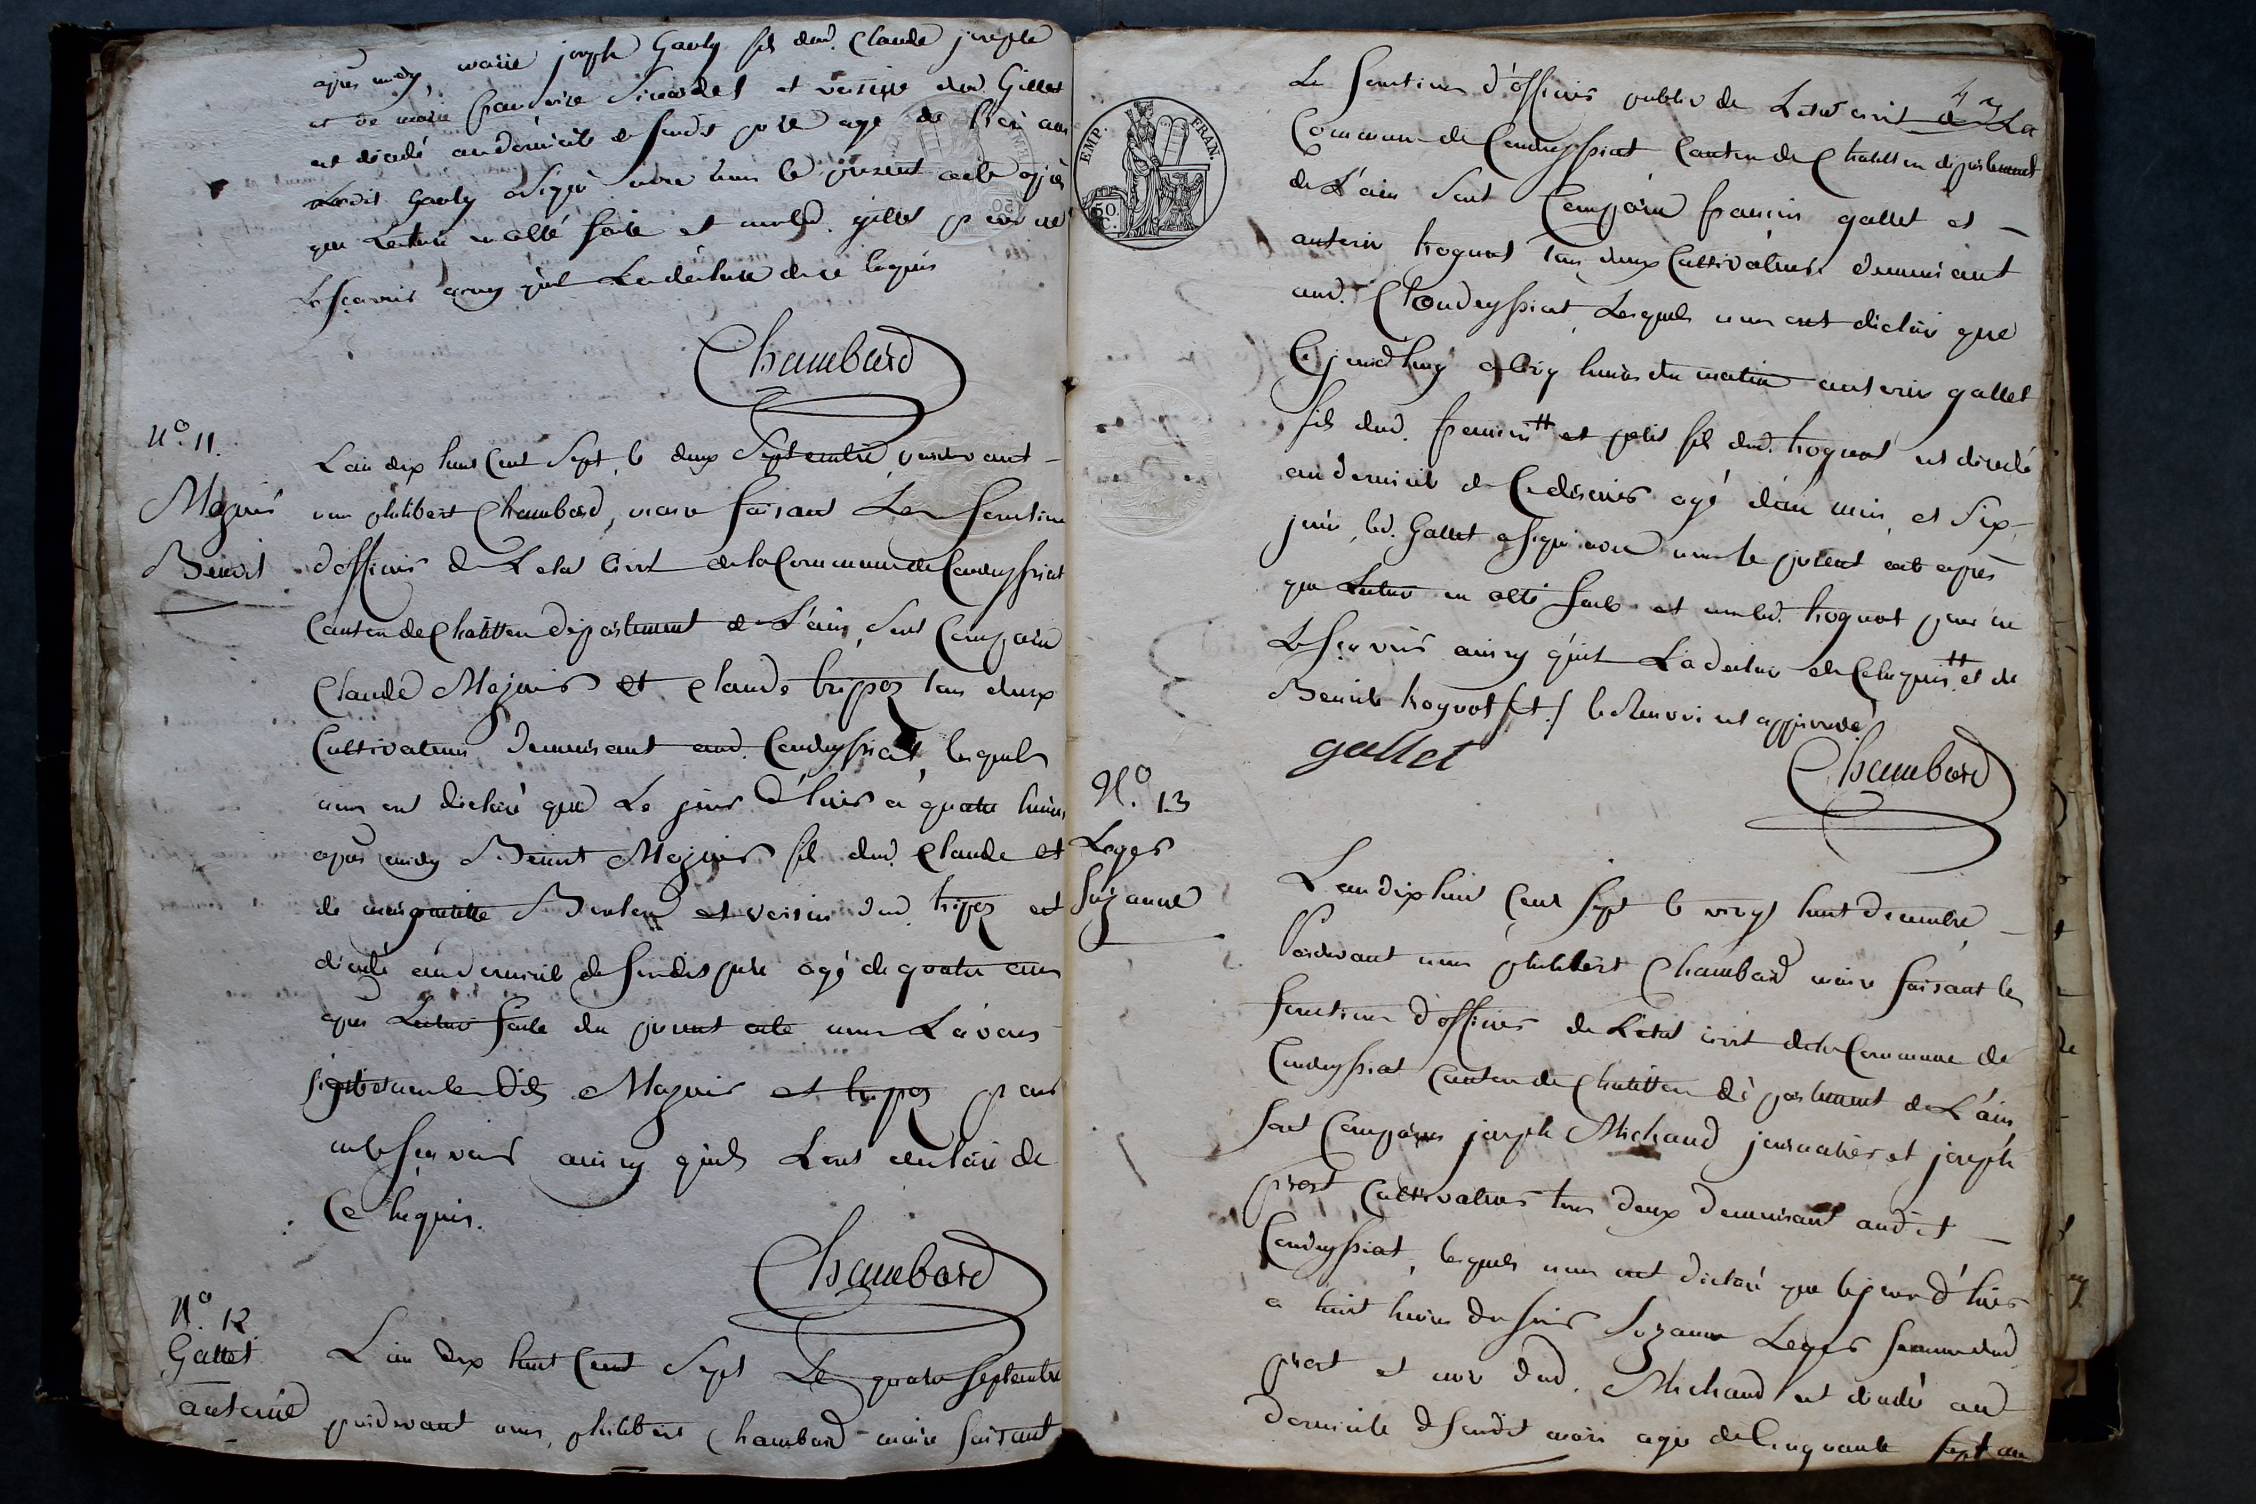 apres midy, marie joseph Gauly fils dud. Claude joseph
et de marie françoise et voisine dud. Gillet
est décédé au domicile de sondit père agé de trois ans
Ledit Gauly a signé avec nous le present acte après
que Lecture en a été faite et non led. gillet pour ne
le sçavoir ainsy qu'il L'a déclaré de ce requis
Chambard
N° 11.
Mazuir
Benoit
L'an dix huit Cent Sept, le deux Septembre, pardevant
nous philibert Chambard, maire faisant Les fonctions
d'officier de L'etat Civil de la Commune de Condeyssiat
Canton de Chatillon département de L'ain, Sont Comparu
Claude Mazuir et Claude trippoz tous deux
Cultivateurs demeurant aud. Condeyssiat, lesquels
nous ont déclaré que Le jour d'hier à quatre heures
après midy Benoit Mazuir fils dud. Claude et
de marguerite et voisin dud. tripoz est
décédé au domicile de sondit père agé de quatre ans
après Lecture faite du present acte nous L'avons
signé et non lesdits Mazuir et trippoz pour
ne le sçavoir ainsy qu'ils L'ont déclaré de
Ce requis.
Chambard
N° 12
Gallet
antoine
L'an dix huit Cent Sept Le quatre septembre
pardevant nous, philibert Chambard maire faisant
4
Le fonctions d'officier public de L'etat civil de La
Commune de Condeyssiat Canton de Chatillon département
de L'ain Sont Comparu françois gallet et
antoine hognot tous deux Cultivateurs demeurant
aud. Condeyssiat, Lesquels nous ont déclaré que
Ce jourd'huy a cinq heures du matin antoine gallet
fils dud. françois # et petit fils dud. hognot est décédé
au domicile de Ce dernier agé d'un mois et six
jours, led. Gallet a signé avec nous le present acte après
que Lecture en a été faite et non led. hognot pour ne
Le sçavoir ainsy qu'il L'a déclaré de Ce requis # et de
Benoite hognot /#/ le Renvoi est approuvé
gallet
Chambard
EMP. FRAN.
50. C.
N° 13
Loges
Suzanne
L'an dix huit Cent sept le vingt huit décembre
Pardevant nous philibert Chambard maire faisant les
fonctions d'officier de L'etat civil de la Commune de
Condeyssiat Canton de Chatillon département de L'ain
Sont Comparu joseph Michaud journalier et joseph
prost Cultivateurs tous deux demeurant audit
Condeyssiat, lesquels nous ont déclaré que le jour d'hier
a huit heures du soir Suzanne Loges femme dud.
prost et dud. Michaud est décédé au
domicile de sondit mari agée de Cinquante sept ans